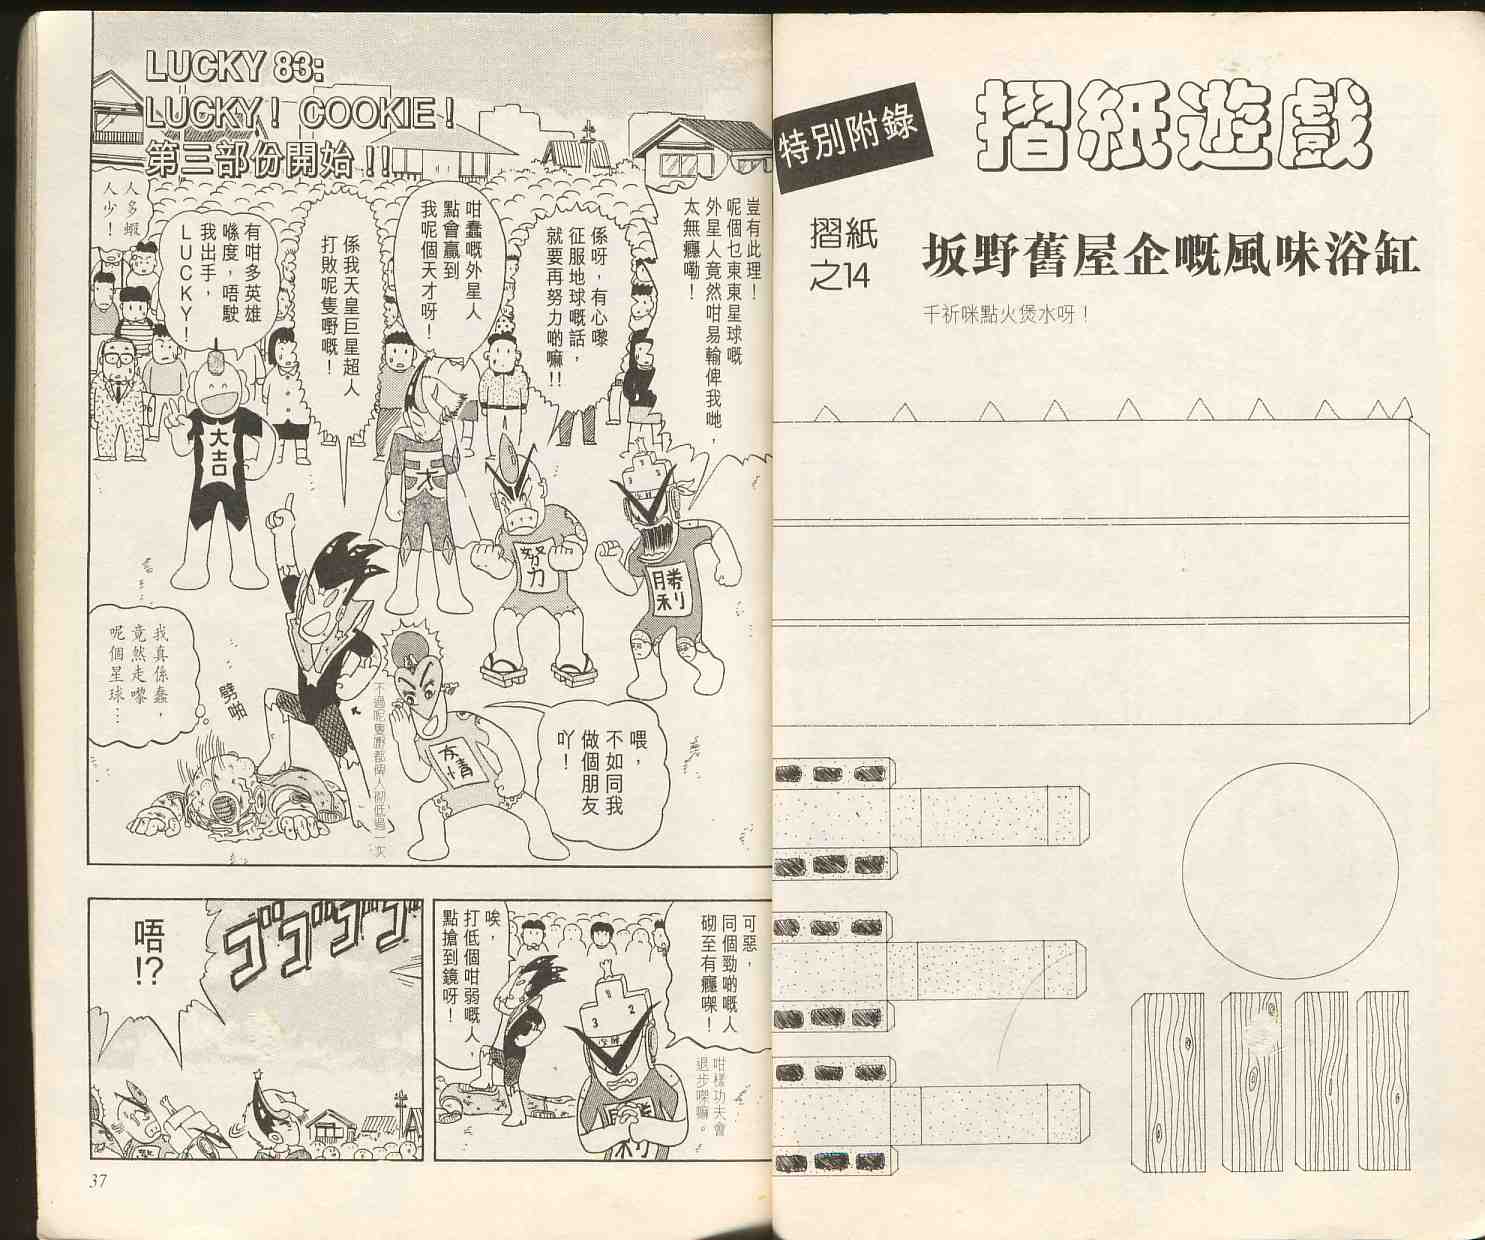 特別附錄
摺紙遊戲
摺紙
之14
坂野舊屋企嘅風味浴缸
千祈咪點火煲水呀！
LUCKY 83:
LUCKY！ COOKIE！
第三部份開始！！
豈有此理！
呢個乜東東星球嘅
外星人竟然咁易輸俾我哋，
太無癮嘞！
係呀，有心嚟
征服地球嘅話，
就要再努力啲嘛!!
咁蠢嘅外星人
點會贏到
我呢個天才呀！
係我天皇巨星超人
打敗呢隻嘢嘅！
有咁多英雄
喺度，唔駛
我出手，
LUCKY！
人多蝦
人少！
大吉
天
努力
勝利
友情
喂，
不如同我
做個朋友
吖！
不過呢隻嘢都俾人裂低過一次
劈啪
我真係蠢，
竟然走嚟
呢個星球…
可惡，
同個勁啲嘅人
砌至有癮㗎！
咁樣功夫會
退步㗎嘛。
1
3
2
勝利
唉，
打低個咁弱嘅人，
點搶到鏡呀！
ゴゴゴゴ
唔!?
37